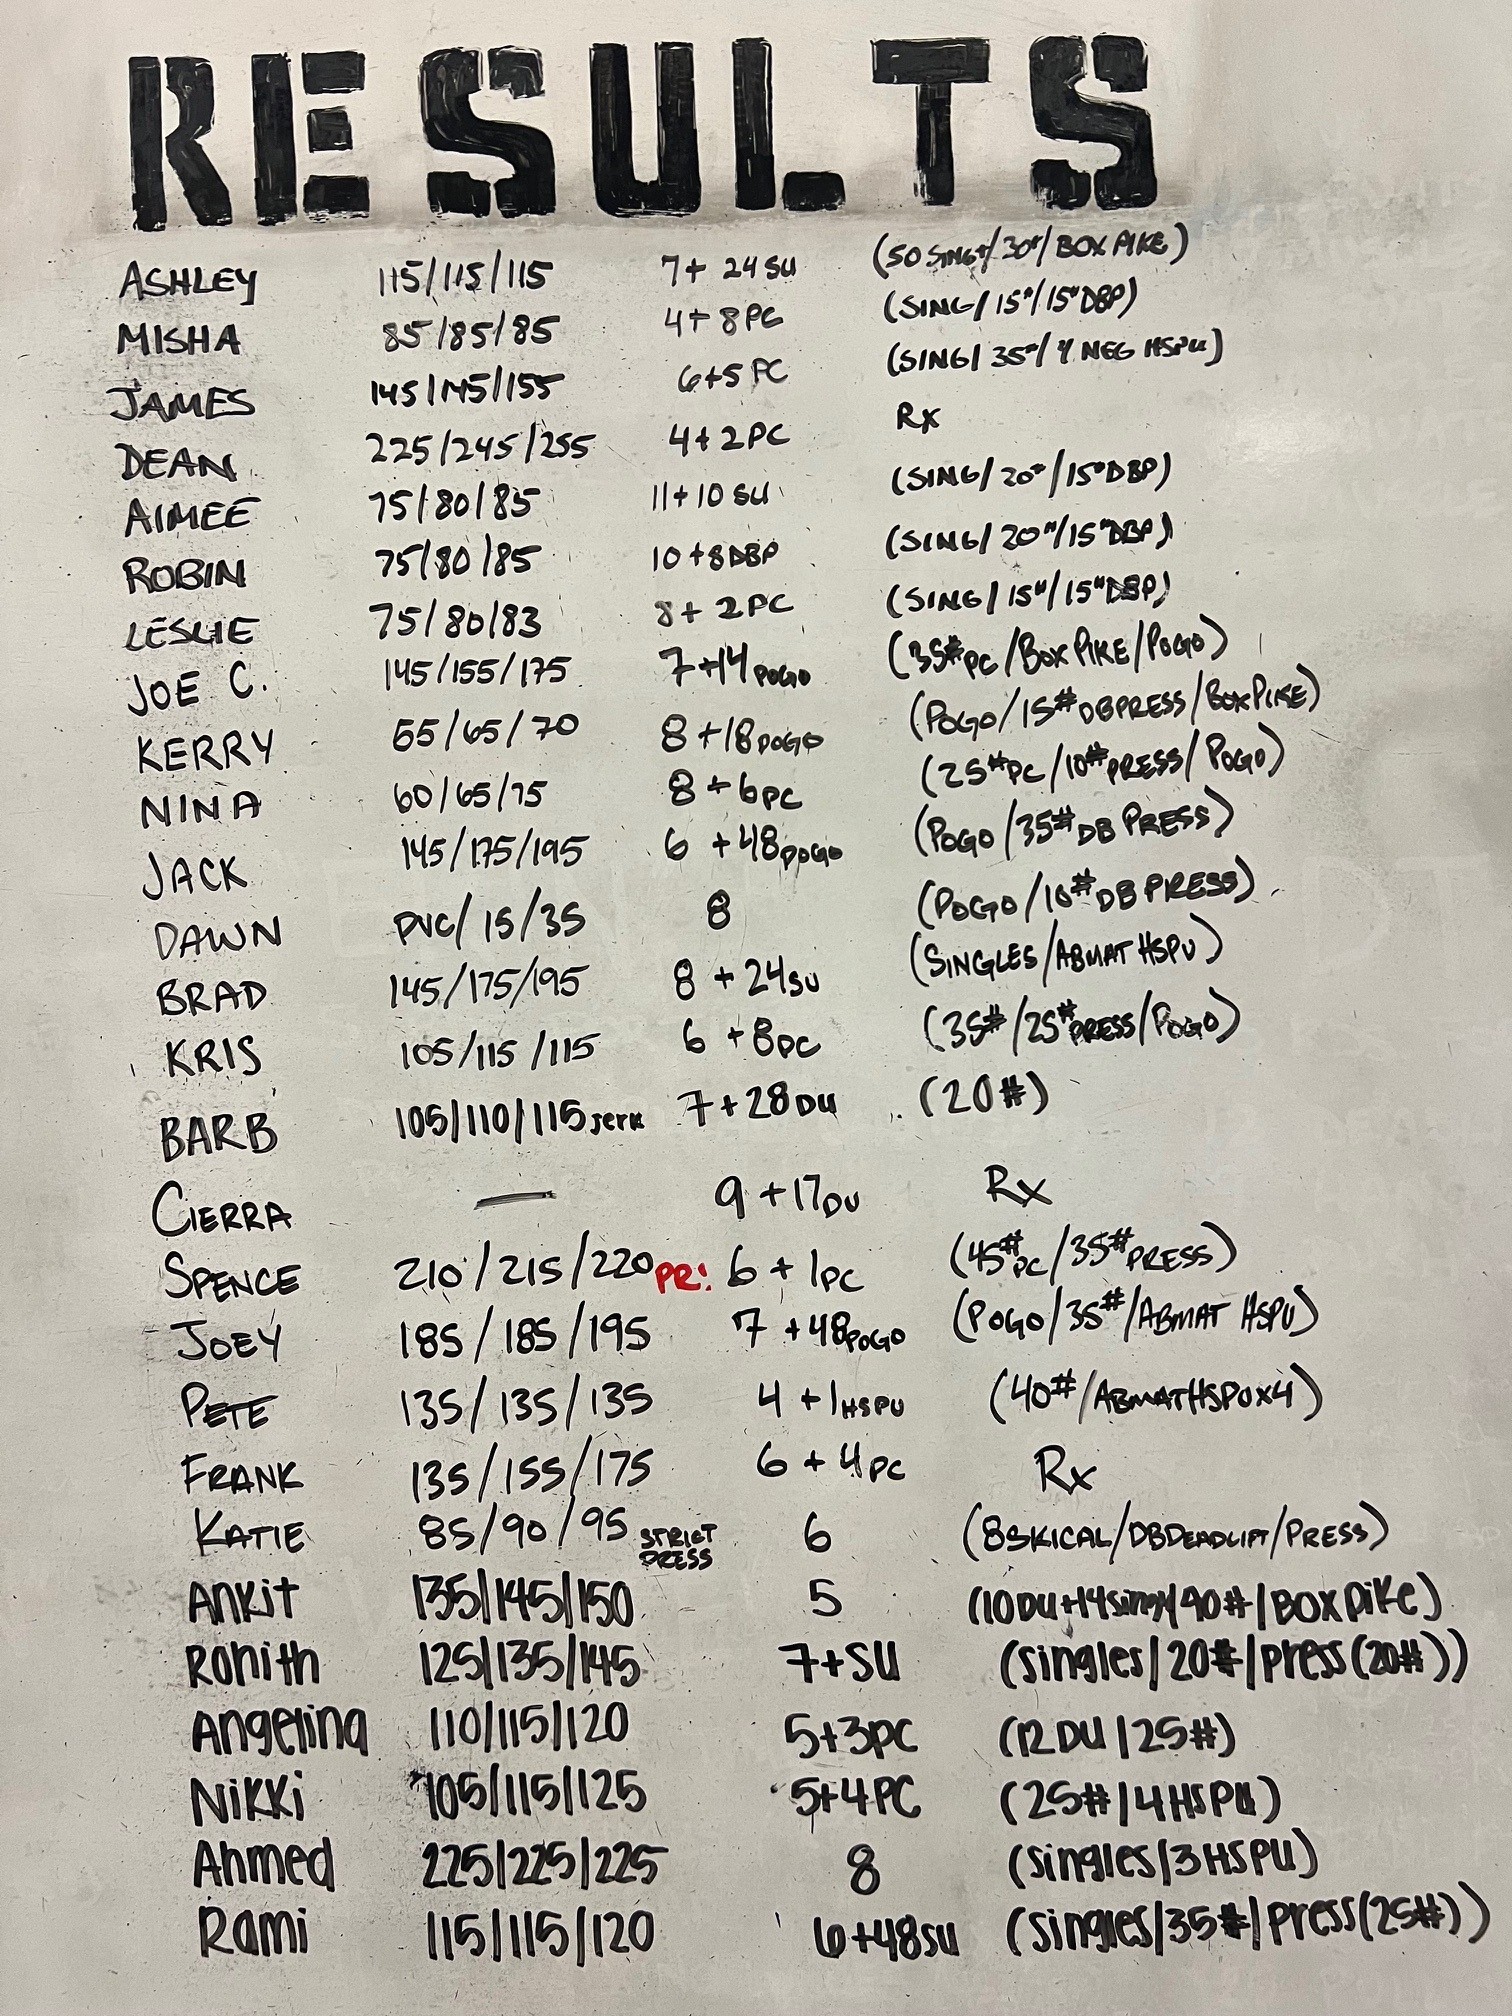 RESULTS
ASHLEY 115/115/115 7+ 24 SU (50 SING/30#/BOX PIKE)
MISHA 85/85/85 4+8PC (SING/15#/15#DBP)
JAMES 145/145/155 6+5 PC (SING/35#/4 NEG HSPU)
DEAN 225/245/255 4+2PC Rx
AIMEE 75/80/85 11+10 SU (SING/20#/15#DBP)
ROBIN 75/80/85 10+8DBP (SING/20#/15#DBP)
LESLIE 75/80/83 8+2PC (SING/15#/15#DBP)
JOE C. 145/155/175 7+14 POGO (35#PC/BOX PIKE/POGO)
KERRY 55/65/70 8+18 POGO (POGO/15# DB PRESS/BOX PIKE)
NINA 60/65/75 8+6PC (25#PC/10#PRESS/POGO)
JACK 145/175/195 6 +48 POGO (POGO/35# DB PRESS)
DAWN PVC/15/35 8 (POGO/10# DB PRESS)
BRAD 145/175/195 8 + 24SU (SINGLES/ABMAT HSPU)
KRIS 105/115/115 6 +8PC (35#/25#PRESS/POGO)
BARB 105/110/115 Jerk 7+28DU (20#)
CIERRA — 9 +17DU Rx
SPENCE 210/215/220 PR! 6 + 1PC (45#PC/35#PRESS)
JOEY 185/185/195 7 +48POGO (POGO/35#/ABMAT HSPU)
PETE 135/135/135 4 +1HSPU (40#/ABMAT HSPU X4)
FRANK 135/155/175 6 + 4PC Rx
KATIE 85/90/95 STRICT PRESS 6 (8SKICAL/DBDEADLIFT/PRESS)
Ankit 135/145/150 5 (10DU+14sing/40#/BOX PIKE)
Ronith 125/135/145 7+SU (singles/20#/press(20#))
Angelina 110/115/120 5+3PC (12DU/25#)
Nikki 105/115/125 5+4PC (25#/4HSPU)
Ahmed 225/225/225 8 (singles/3HSPU)
Rami 115/115/120 6+48SU (singles/35#/press(25#))